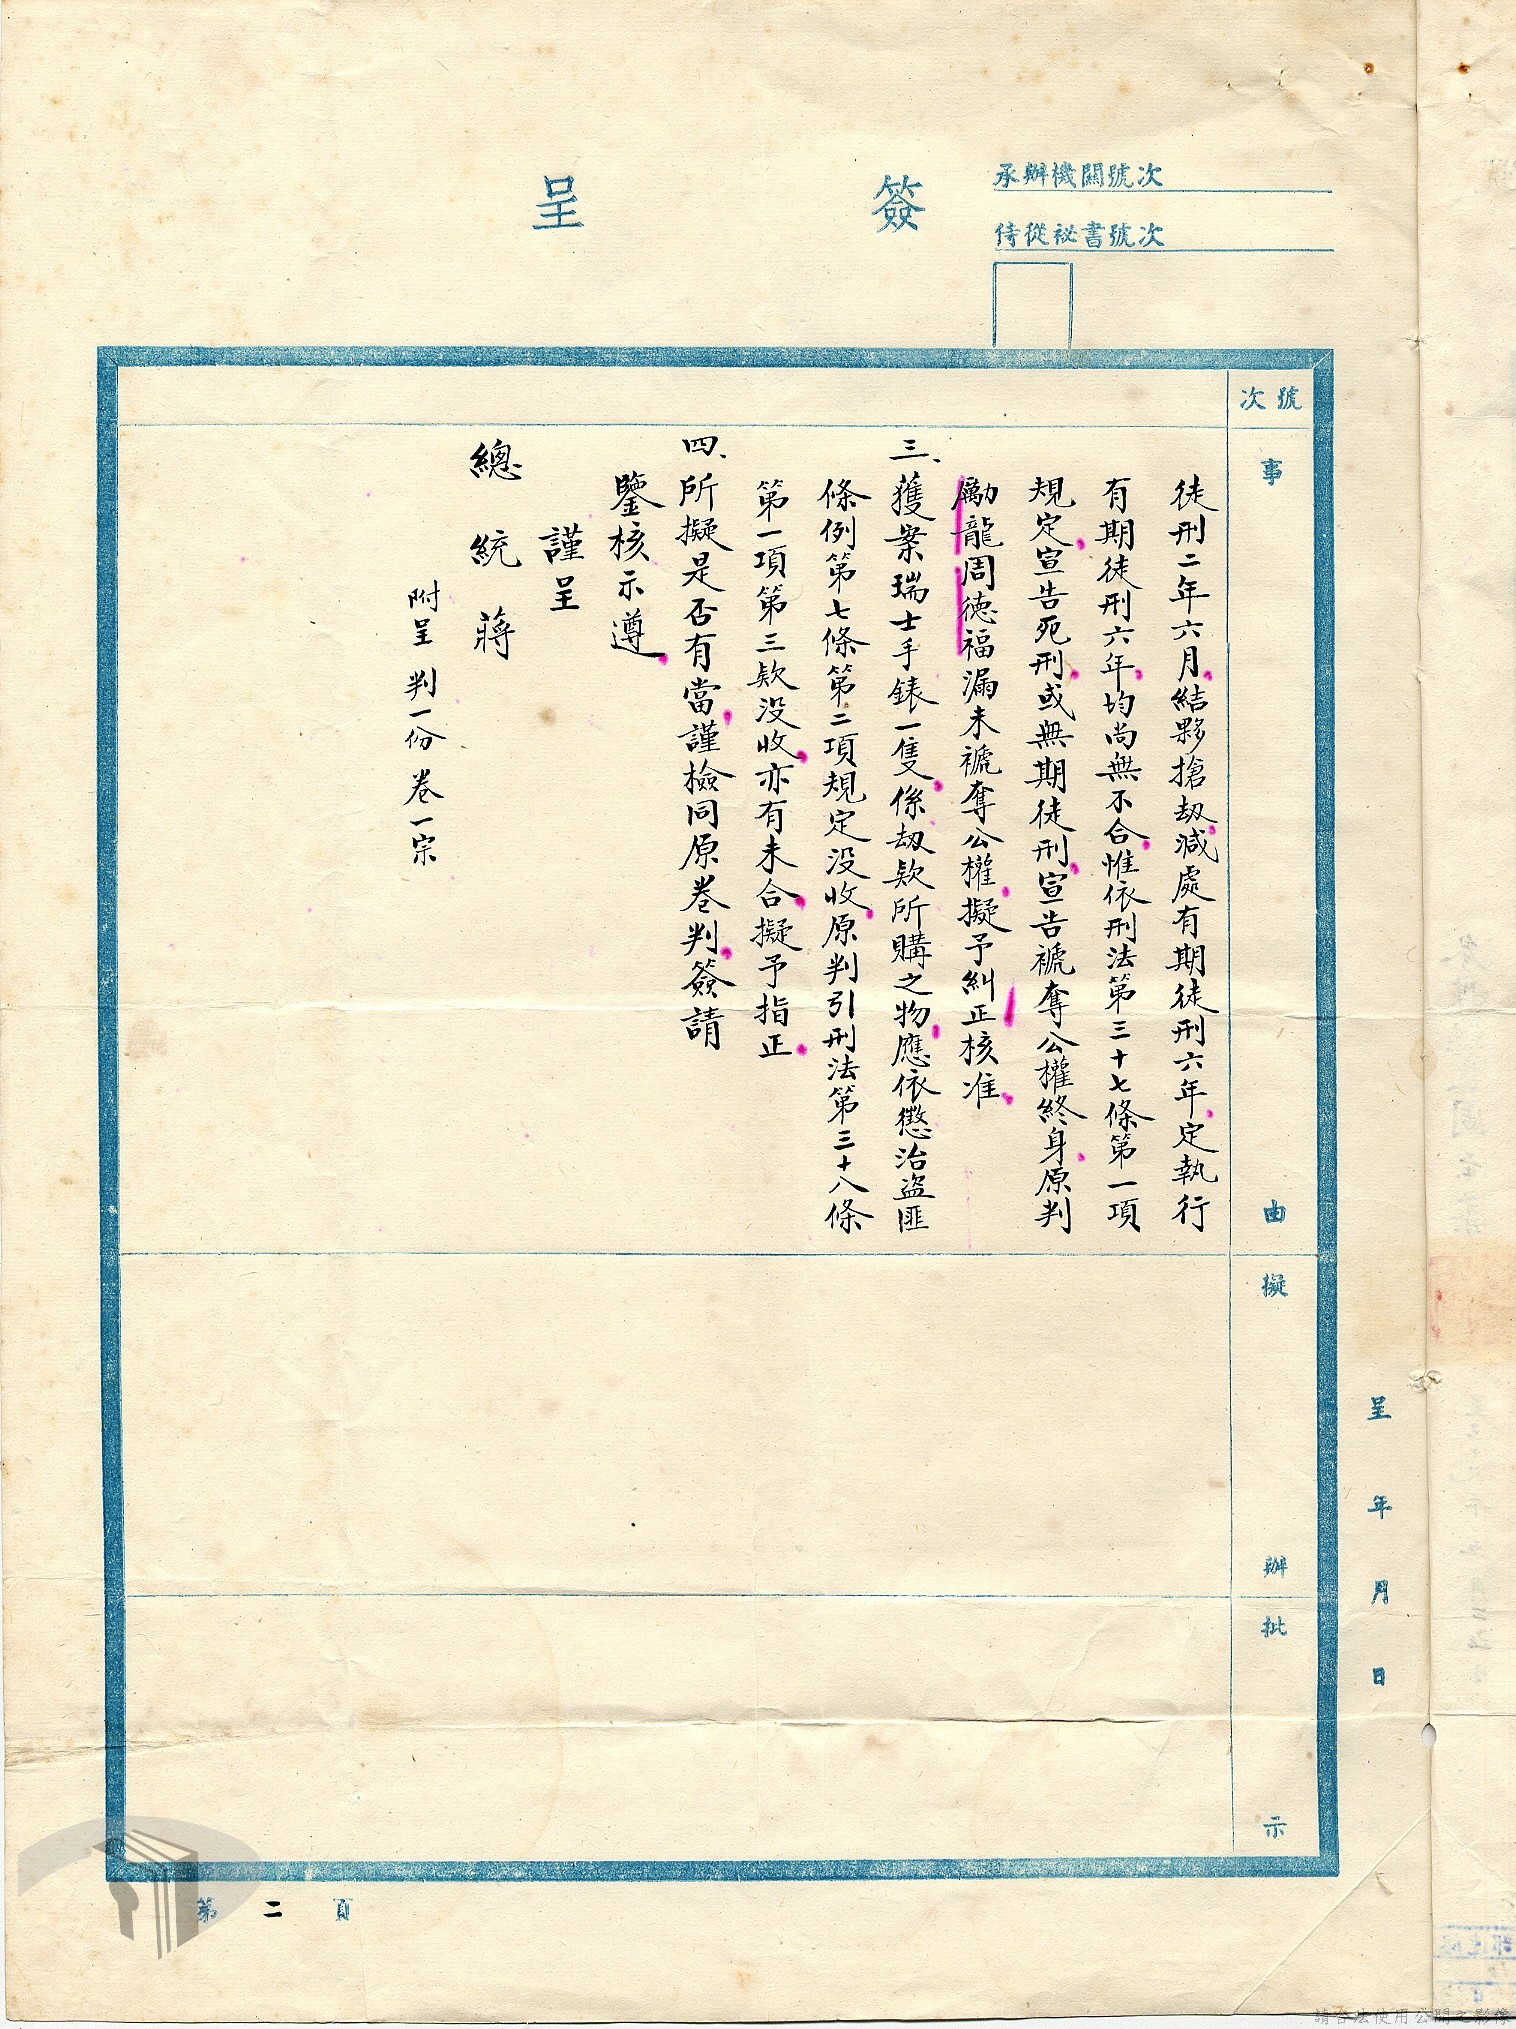 簽呈
承辦機關號次
侍從祕書號次
號次
事由
擬辦
批示
呈 年 月 日
徒刑二年六月結夥搶刼減處有期徒刑六年定執行
有期徒刑六年均尚無不合惟依刑法第三十七條第一項
規定宣告死刑或無期徒刑宣告褫奪公權終身原判
勵龍周德福漏未褫奪公權擬予糾正核准
三、獲案瑞士手錶一隻係刼款所購之物應依懲治盜匪
條例第七條第二項規定没收原判引刑法第三十八條
第一項第三款没收亦有未合擬予指正
四、所擬是否有當謹檢同原卷判簽請
鑒核示遵
謹呈
總統 蔣
附呈 判一份 卷一宗
第二頁
請合法使用公開之影像